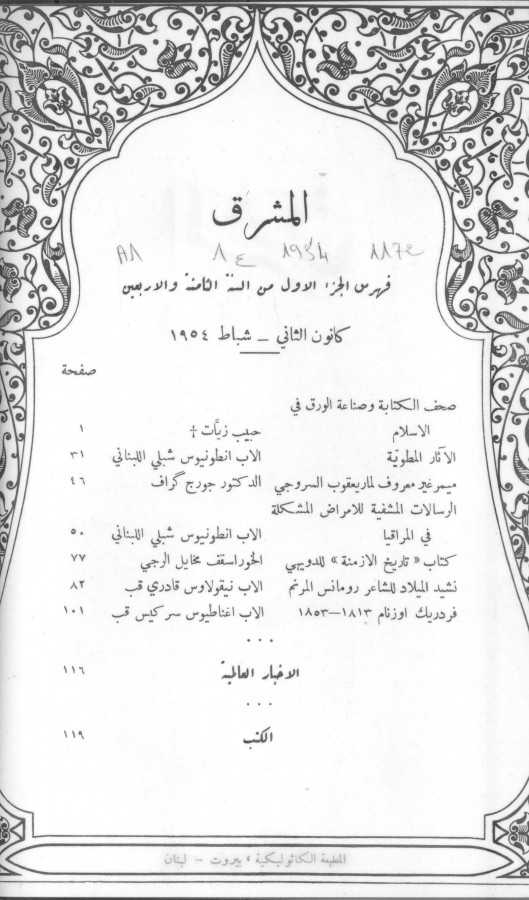 المشرق
A1 1ع 1954 1172
فهرس الجزء الاول من السنة الثامنة والاربعين
كانون الثاني – شباط ١٩٥٤
صفحة
صحف الكتابة وصناعة الورق في
الاسلام حبيب زيَّات † ١
الآثار المطويّة الاب انطونيوس شبلي اللبناني ٣١
ميمر غير معروف لمار يعقوب السروجي الدكتور جورج گراف ٤٦
الرسالات المشفية للامراض المشكلة
في المراقيا الاب انطونيوس شبلي اللبناني ٥٠
كتاب «تاريخ الازمنة» للدويهي الخوراسقف مخايل الرجي ٧٧
نشيد الميلاد للشاعر رومانس المرنم الاب نيقولاوس قادري قب ٨٢
فردريك اوزنام ١٨١٣–١٨٥٣ الاب اغناطيوس سركيس قب ١٠١
...
الاخبار العالمية ١١٦
...
الكتب ١١٩
المطبعة الكاثوليكية ، بيروت – لبنان